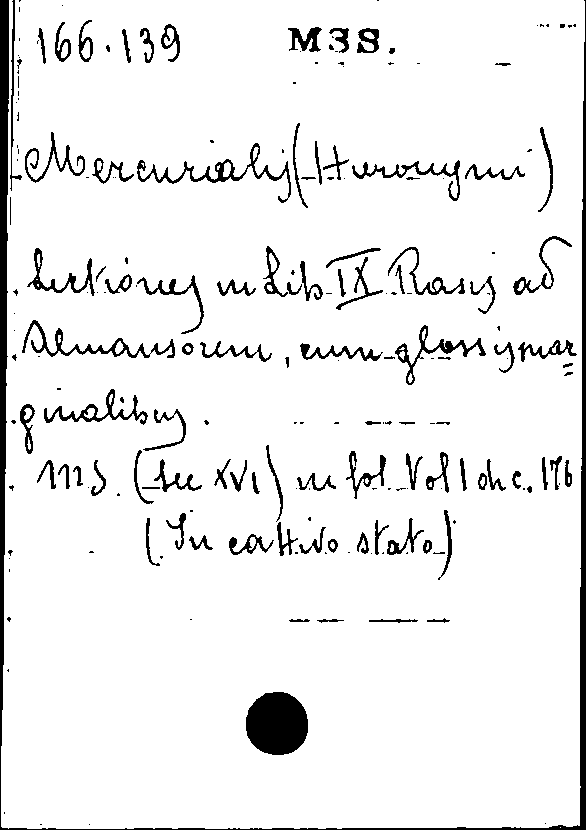 166.139 M3S.
Mercurialis (Hieronymi)
Lectiones in Lib IX Rasis ad
Almansorem, cum glossis mar=
ginalibus.
MS. (Sec XVI) in fol Vol 1 di c. 176
(In cattivo stato)